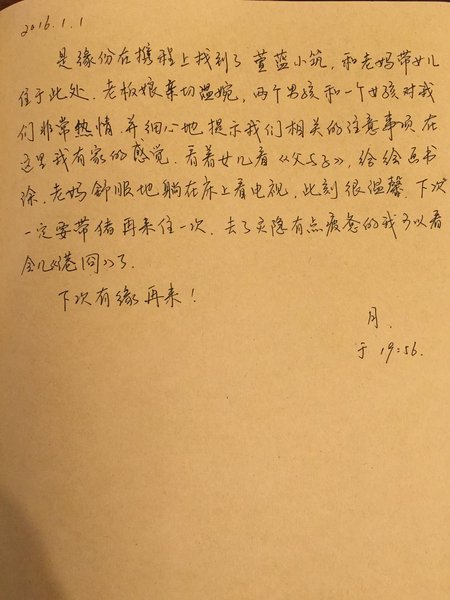 2016.1.1
是缘份在携程上找到了萱蓝小筑,和老妈带女儿
住于此处.老板娘亲切温婉,两个男孩和一个女孩对我
们非常热情.并细心地提示我们相关的注意事项在
这里我有家的感觉.看着女儿看《父与子》,绘绘画书
涂.老妈舒服地躺在床上看电视.此刻很温馨.下次
一定要带倩再来住一次.去了灵隐有点疲惫的我可以看
会儿《港囧》了.
下次有缘再来!
月.
于 19:56.